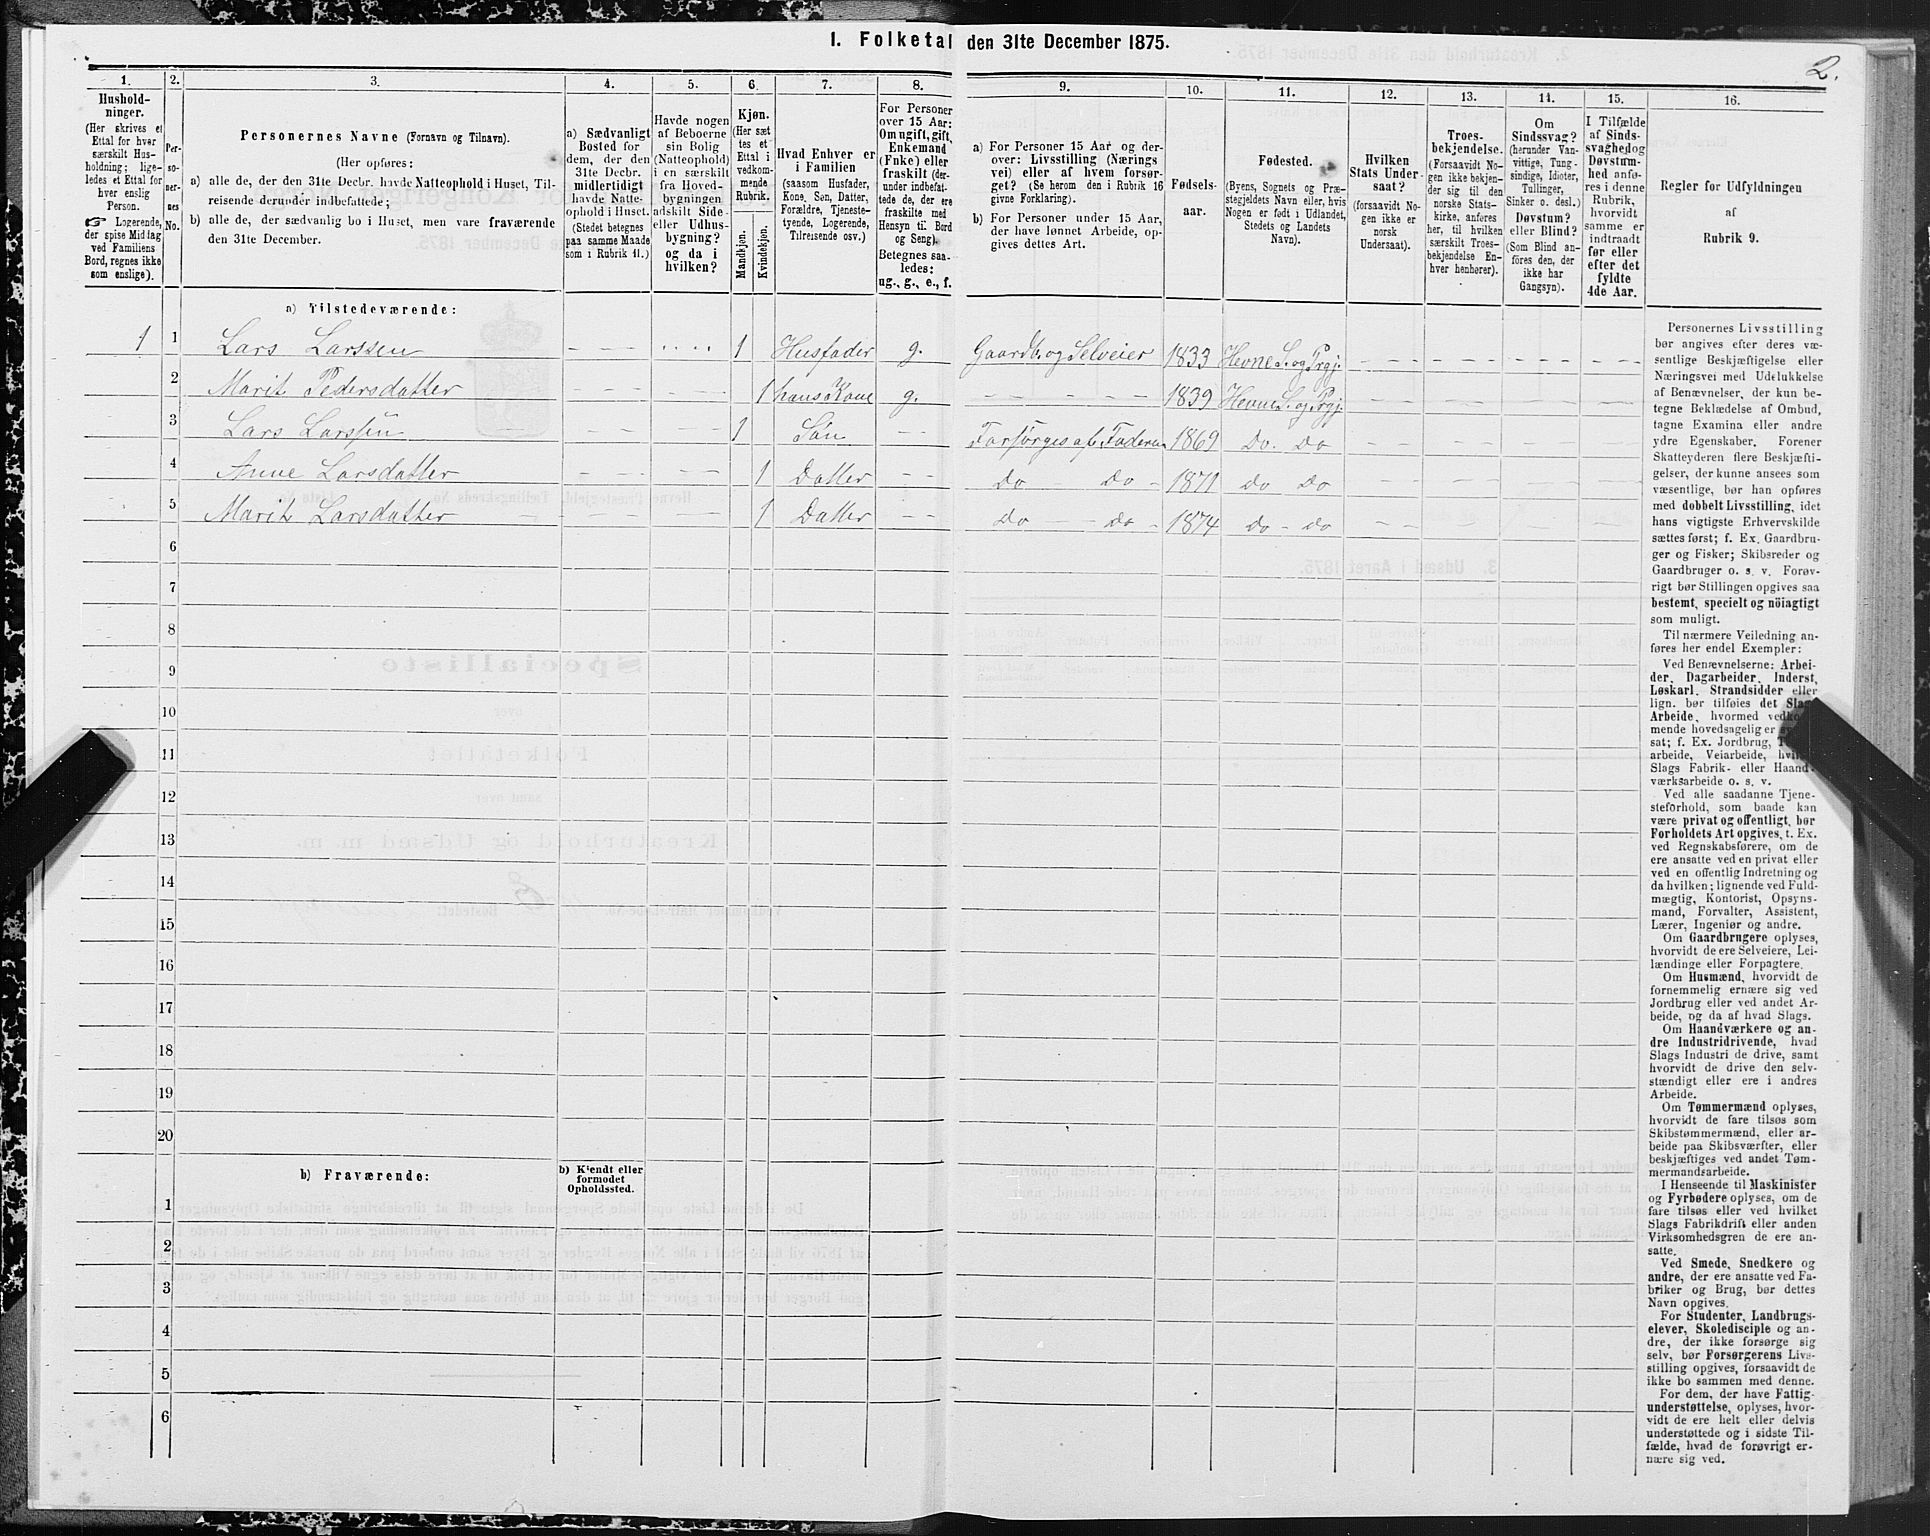 1. Folketal den 31te December 1875.
2.
1. 2. 3. 4. 5. 6. 7. 8. 9. 10. 11. 12. 13. 14. 15. 16.
Hushold-
ninger.
(Her skrives et
Ettal for hver
særskilt Hus-
holdning; lige-
ledes et Ettal for
hver enslig
Person.
☞ Logerende,
der spise Middag
ved Familiens
Bord, regnes ikke
som enslige).
Per-
so-
ner-
nes
No.
Personernes Navne (Fornavn og Tilnavn).
(Her opføres:
a) alle de, der den 31te Decbr. havde Natteophold i Huset, Til-
reisende derunder indbefattede;
b) alle de, der sædvanlig bo i Huset, men vare fraværende
den 31te December.
a) Sædvanligt
Bosted for
dem, der den
31te Decbr.
midlertidigt
havde Natte-
ophold i Huset.
(Stedet betegnes
paa samme Maade
som i Rubrik 11.)
Havde nogen
af Beboerne
sin Bolig
(Natteophold)
i en særskilt
fra Hoved-
bygningen
adskilt Side-
eller Udhus-
bygning?
og da i
hvilken?
Kjøn.
(Her sæt
tes et
Ettal i
vedkom-
mende
Rubrik.
Mandkjøn.
Kvindekjøn.
Hvad Enhver er
i Familien
(saasom Husfader,
Kone, Søn, Datter,
Forældre, Tjeneste-
tyende, Logerende,
Tilreisende osv.)
For Personer
over 15 Aar:
Om ugift, gift,
Enkemand
(Enke) eller
fraskilt (der-
under indbefat-
tede de, der ere
fraskilte med
Hensyn til Bord
og Seng).
Betegnes saa-
ledes:
ug., g., e., f.
a) For Personer 15 Aar og der-
over: Livsstilling (Nærings
vei) eller af hvem forsør-
get? (Se herom den i Rubrik 16
givne Forklaring).
b) For Personer under 15 Aar,
der have lønnet Arbeide, op-
gives dettes Art.
Fødsels-
aar.
Fødested.
(Byens, Sognets og Præ-
stegjeldets Navn eller, hvis
Nogen er født i Udlandet,
Stedets og Landets
Navn).
Hvilken
Stats Under-
saat?
(forsaavidt No-
gen ikke er
norsk
Undersaat).
Troes-
bekjendelse.
(Forsaavidt No-
gen ikke bekjen-
der sig til den
norske Stats-
kirke, anføres
her, til hvilken
særskilt Troes-
bekjendelse En-
hver henhører).
Om
Sindssvag?
(herunder Van-
vittige, Tung-
sindige, Idioter,
Tullinger,
Sinker o. desl.)
Døvstum?
eller Blind?
(Som Blind an-
føres den, der
ikke har
Gangsyn).
I Tilfælde
af Sinds-
svaghed og
Døvstum-
hed anfø-
res i denne
Rubrik,
hvorvidt
samme er
indtraadt
før eller
efter det
fyldte
4de Aar.
Regler for Udfyldningen
af
Rubrik 9.
a) Tilstedeværende:
1 1 Lars Larssen 1 Husfader g. Gaardb. og Selveier 1833 Hevne S. og Prgj.
2 Marit Pedersdatter 1 hans Kone g. 1839 Hevne S. og Prgj.
3 Lars Larssen 1 Søn Forsørges af Faderen 1869 Do. Do
4 Anne Larsdatter 1 Datter Do Do 1871 Do Do
5 Marit Larsdatter 1 Datter Do Do 1874 Do Do
6
7
8
9
10
11
12
13
14
15
16
17
18
19
20
b) Fraværende:
b) Kjendt eller
formodet
Opholdssted.
1
2
3
4
5
6
Personernes Livsstilling
bør angives efter deres væ-
sentlige Beskjæftigelse eller
Næringsvei med Udelukkelse
af Benævnelser, der kun be-
tegne Beklædelse af Ombud,
tagne Examina eller andre
ydre Egenskaber. Forener
Skatteyderen flere Beskjæfti-
gelser, der kunne ansees som
væsentlige, bør han opføres
med dobbelt Livsstilling, idet
hans vigtigste Erhvervskilde
sættes først; f. Ex. Gaardbru-
ger og Fisker; Skibsreder og
Gaardbruger o. s. v. Forøv-
rigt bør Stillingen opgives saa
bestemt, specielt og nöiagtigt
som muligt.
Til nærmere Veiledning an-
føres her endel Exempler:
Ved Benævnelserne: Arbei-
der, Dagarbeider, Inderst,
Løskarl, Strandsidder eller
lign. bør tilføies det Slags
Arbeide, hvormed vedkom-
mende hovedsagelig er
sat; f. Ex. Jordbrug,
arbeide, Veiarbeide,
Slags Fabrik- eller Haand-
værksarbeide o. s. v.
Ved alle saadanne Tjene-
steforhold, som baade kan
være privat og offentligt, bør
Forholdets Art opgives, t. Ex.
ved Regnskabsførere, om de
ere ansatte ved en privat eller
ved en offentlig Indretning og
da hvilken; lignende ved Fuld-
mægtig, Kontorist, Opsyns-
mand, Forvalter, Assistent,
Lærer, Ingeniør og andre.
Om Gaardbrugere oplyses,
hvorvidt de ere Selveiere, Lei-
lændinge eller Forpagtere.
Om Husmænd, hvorvidt de
fornemmelig ernære sig ved
Jordbrug eller ved andet Ar-
beide, og da af hvad Slags.
Om Haandværkere og an-
dre Industridrivende, hvad
Slags Industri de drive, samt
hvorvidt de drive den selv-
stændigt eller ere i andres
Arbeide.
Om Tømmermænd oplyses,
hvorvidt de fare tilsøs som
Skibstømmermænd, eller ar-
beide paa Skibsværfter, eller
beskjæftiges ved andet Tøm-
mermandsarbeide.
I Henseende til Maskinister
og Fyrbødere oplyses, om de
fare tilsøs eller ved hvilket
Slags Fabrikdrift eller anden
Virksomhedsgren de ere an-
satte.
Ved Smede, Snedkere og
andre, der ere ansatte ved Fa-
briker og Brug, bør dettes
Navn opgives.
For Studenter, Landbrugs-
elever, Skoledisciple og an-
dre, der ikke forsørge sig
selv, bør Forsørgerens Livs-
stilling opgives, forsaavidt de
ikke bo sammen med denne.
For dem, der have Fattig-
understøttelse, oplyses, hvor-
vidt de ere helt eller delvis
understøttede og i sidste Til-
fælde, hvad de forøvrigt er-
nære sig ved.